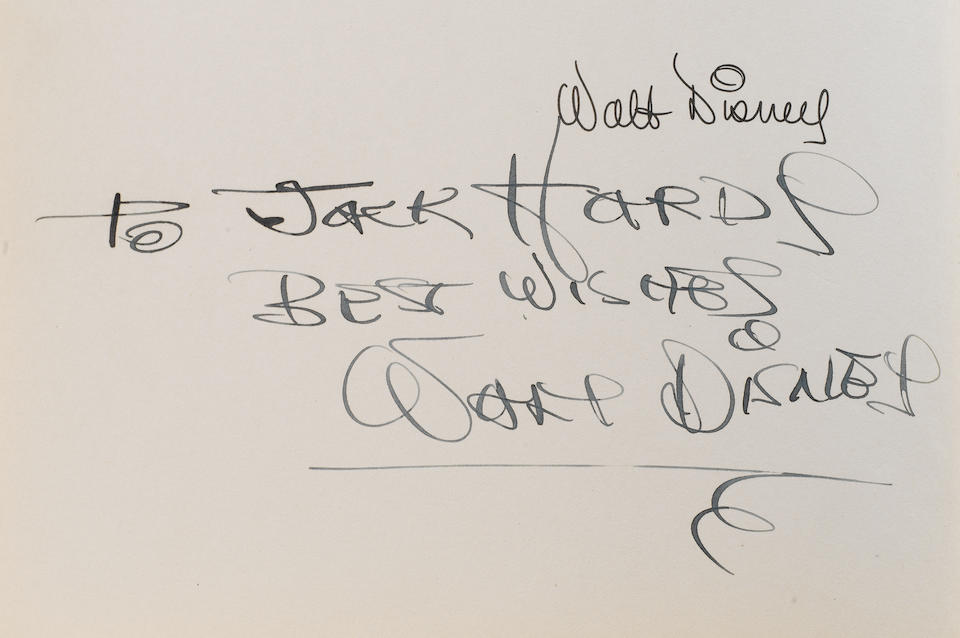 Walt Disney
To JACK HARDY
BEST WISHES
WALT DISNEY